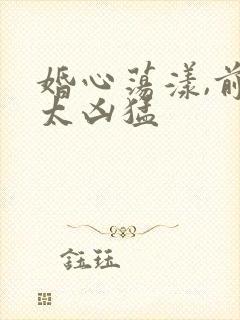 婚心荡漾,前
太凶猛
钰珏